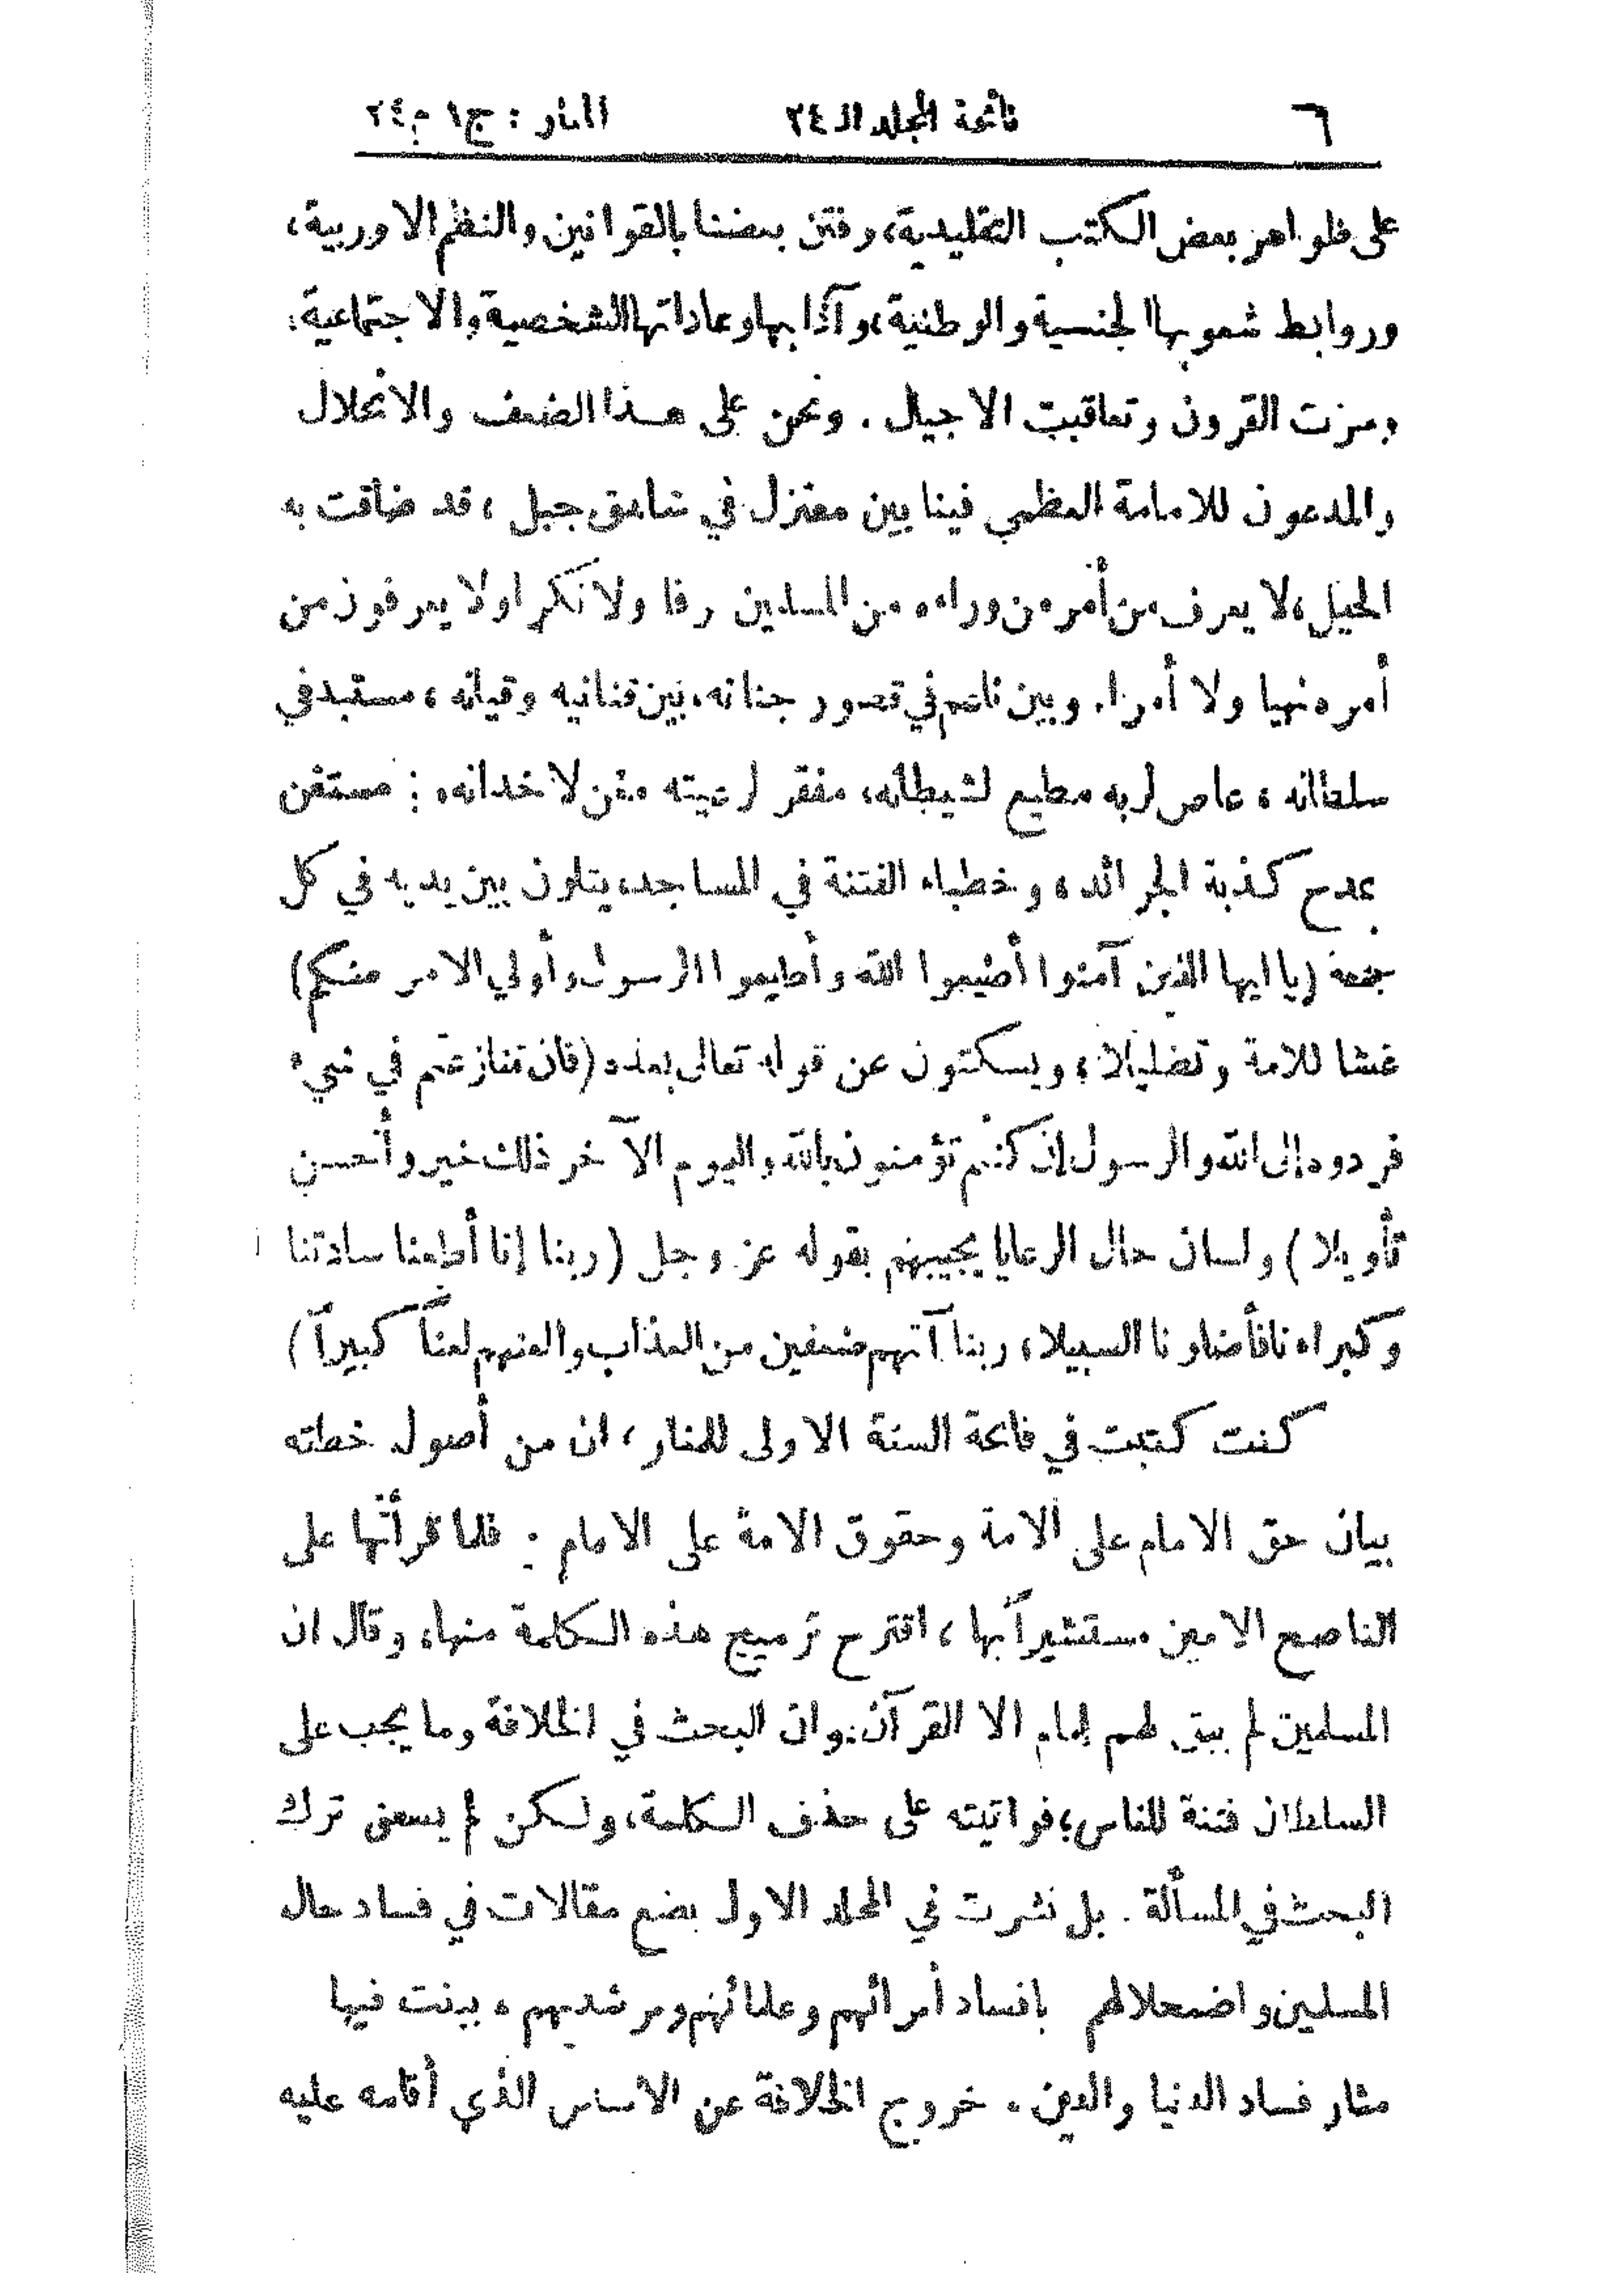 ٦ فاتحة المجلد الـ ٢٤ المنار : ج١ م٢٤
على ظواهر بعض الكتب التقليدية، وفتن بعضنا بالقوانين والنظم الاوربية،
وروابط شعوبها الجنسية والوطنية، وآدابها وعاداتها الشخصية والاجتماعية:
ومرت القرون وتعاقبت الاجيال . ونحن على هـذا الضعف والانحلال
والمدعون للامامة العظمى فينا بين معتزل في شاهق جبل ، قد ضاقت به
الحيل، لا يعرف من أمر من وراءه من المسلمين عرفا ولا نكرا ولا يعرفون من
أمره نهيا ولا أمرا. وبين ناعم في قصور جناته، بين قنانيه وقيانه ، مستبد في
سلطانه ، عاص لربه مطيع لشيطانه، مفقر لرعيته مغن لاخدانه، : مستغن
بمدح كذبة الجرائد، وخطباء الفتنة في المساجد، يتلون بين يديه في كل
جمعة (يا ايها الذين آمنوا أطيعوا الله وأطيعوا الرسول وأولي الامر منكم)
غشا للامة وتضليلا، ويسكتون عن قوله تعالى بعده (فان تنازعتم في شيء
فردوه إلى الله والرسول إن كنتم تؤمنون بالله واليوم الآخر ذلك خير وأحسن
تأويلا) ولسان حال الرعايا يجيبهم بقوله عز وجل (ربنا إنا أطعنا سادتنا
وكبراءنا فأضلونا السبيلا، ربنا آتهم ضعفين من العذاب والعنهم لعناً كبيراً)
كنت كتبت في فاتحة السنة الاولى للمنار ، ان من أصول خطته
بيان حق الامام على الامة وحقوق الامة على الامام . فلما قرأتها على
الناصح الامين مستشيراً بها ، اقترح ترميج هذه الـكلمة منها، وقال ان
المسلمين لم يبق لهم إمام الا القرآن، وان البحث في الخلافة وما يجب على
السلطان فتنة للناس، فواتيته على حذف الـكلمة، ولـكن لم يسعني ترك
البحث في المسألة . بل نشرت في المجلد الاول بضع مقالات في فساد حال
المسلمين واضمحلالهم بافساد أمرائهم وعلمائهم ومرشديهم ، بينت فيها
مثار فساد الدنيا والدين . خروج الخلافة عن الاساس الذي أقامه عليه